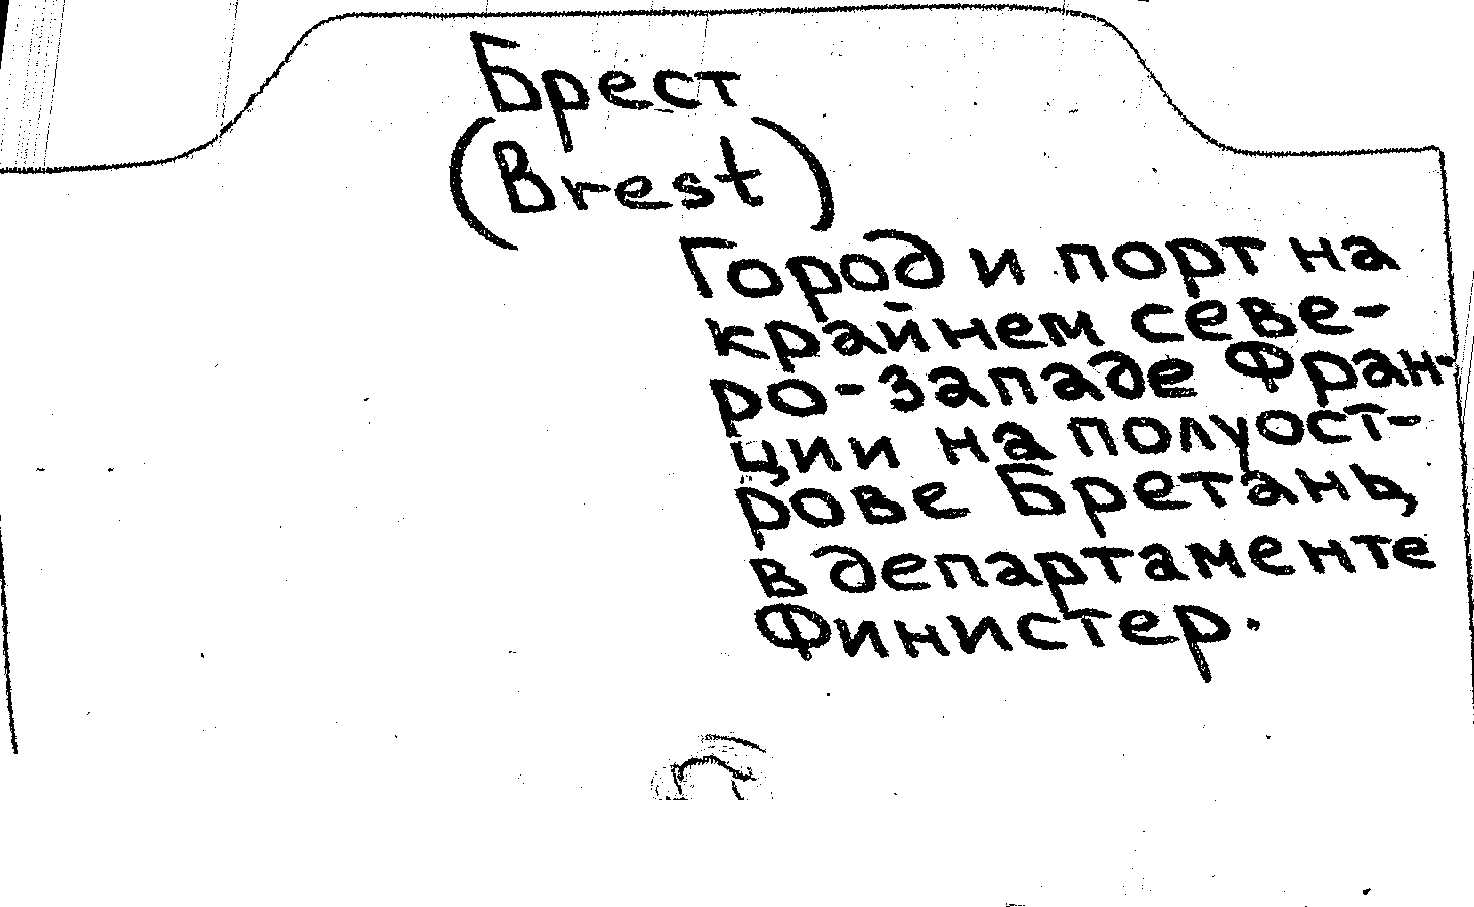 Брест
(Brest)
Город и порт на
крайнем севе-
ро-западе Фран-
ции на полуост-
рове Бретань,
в департаменте
Финистер.